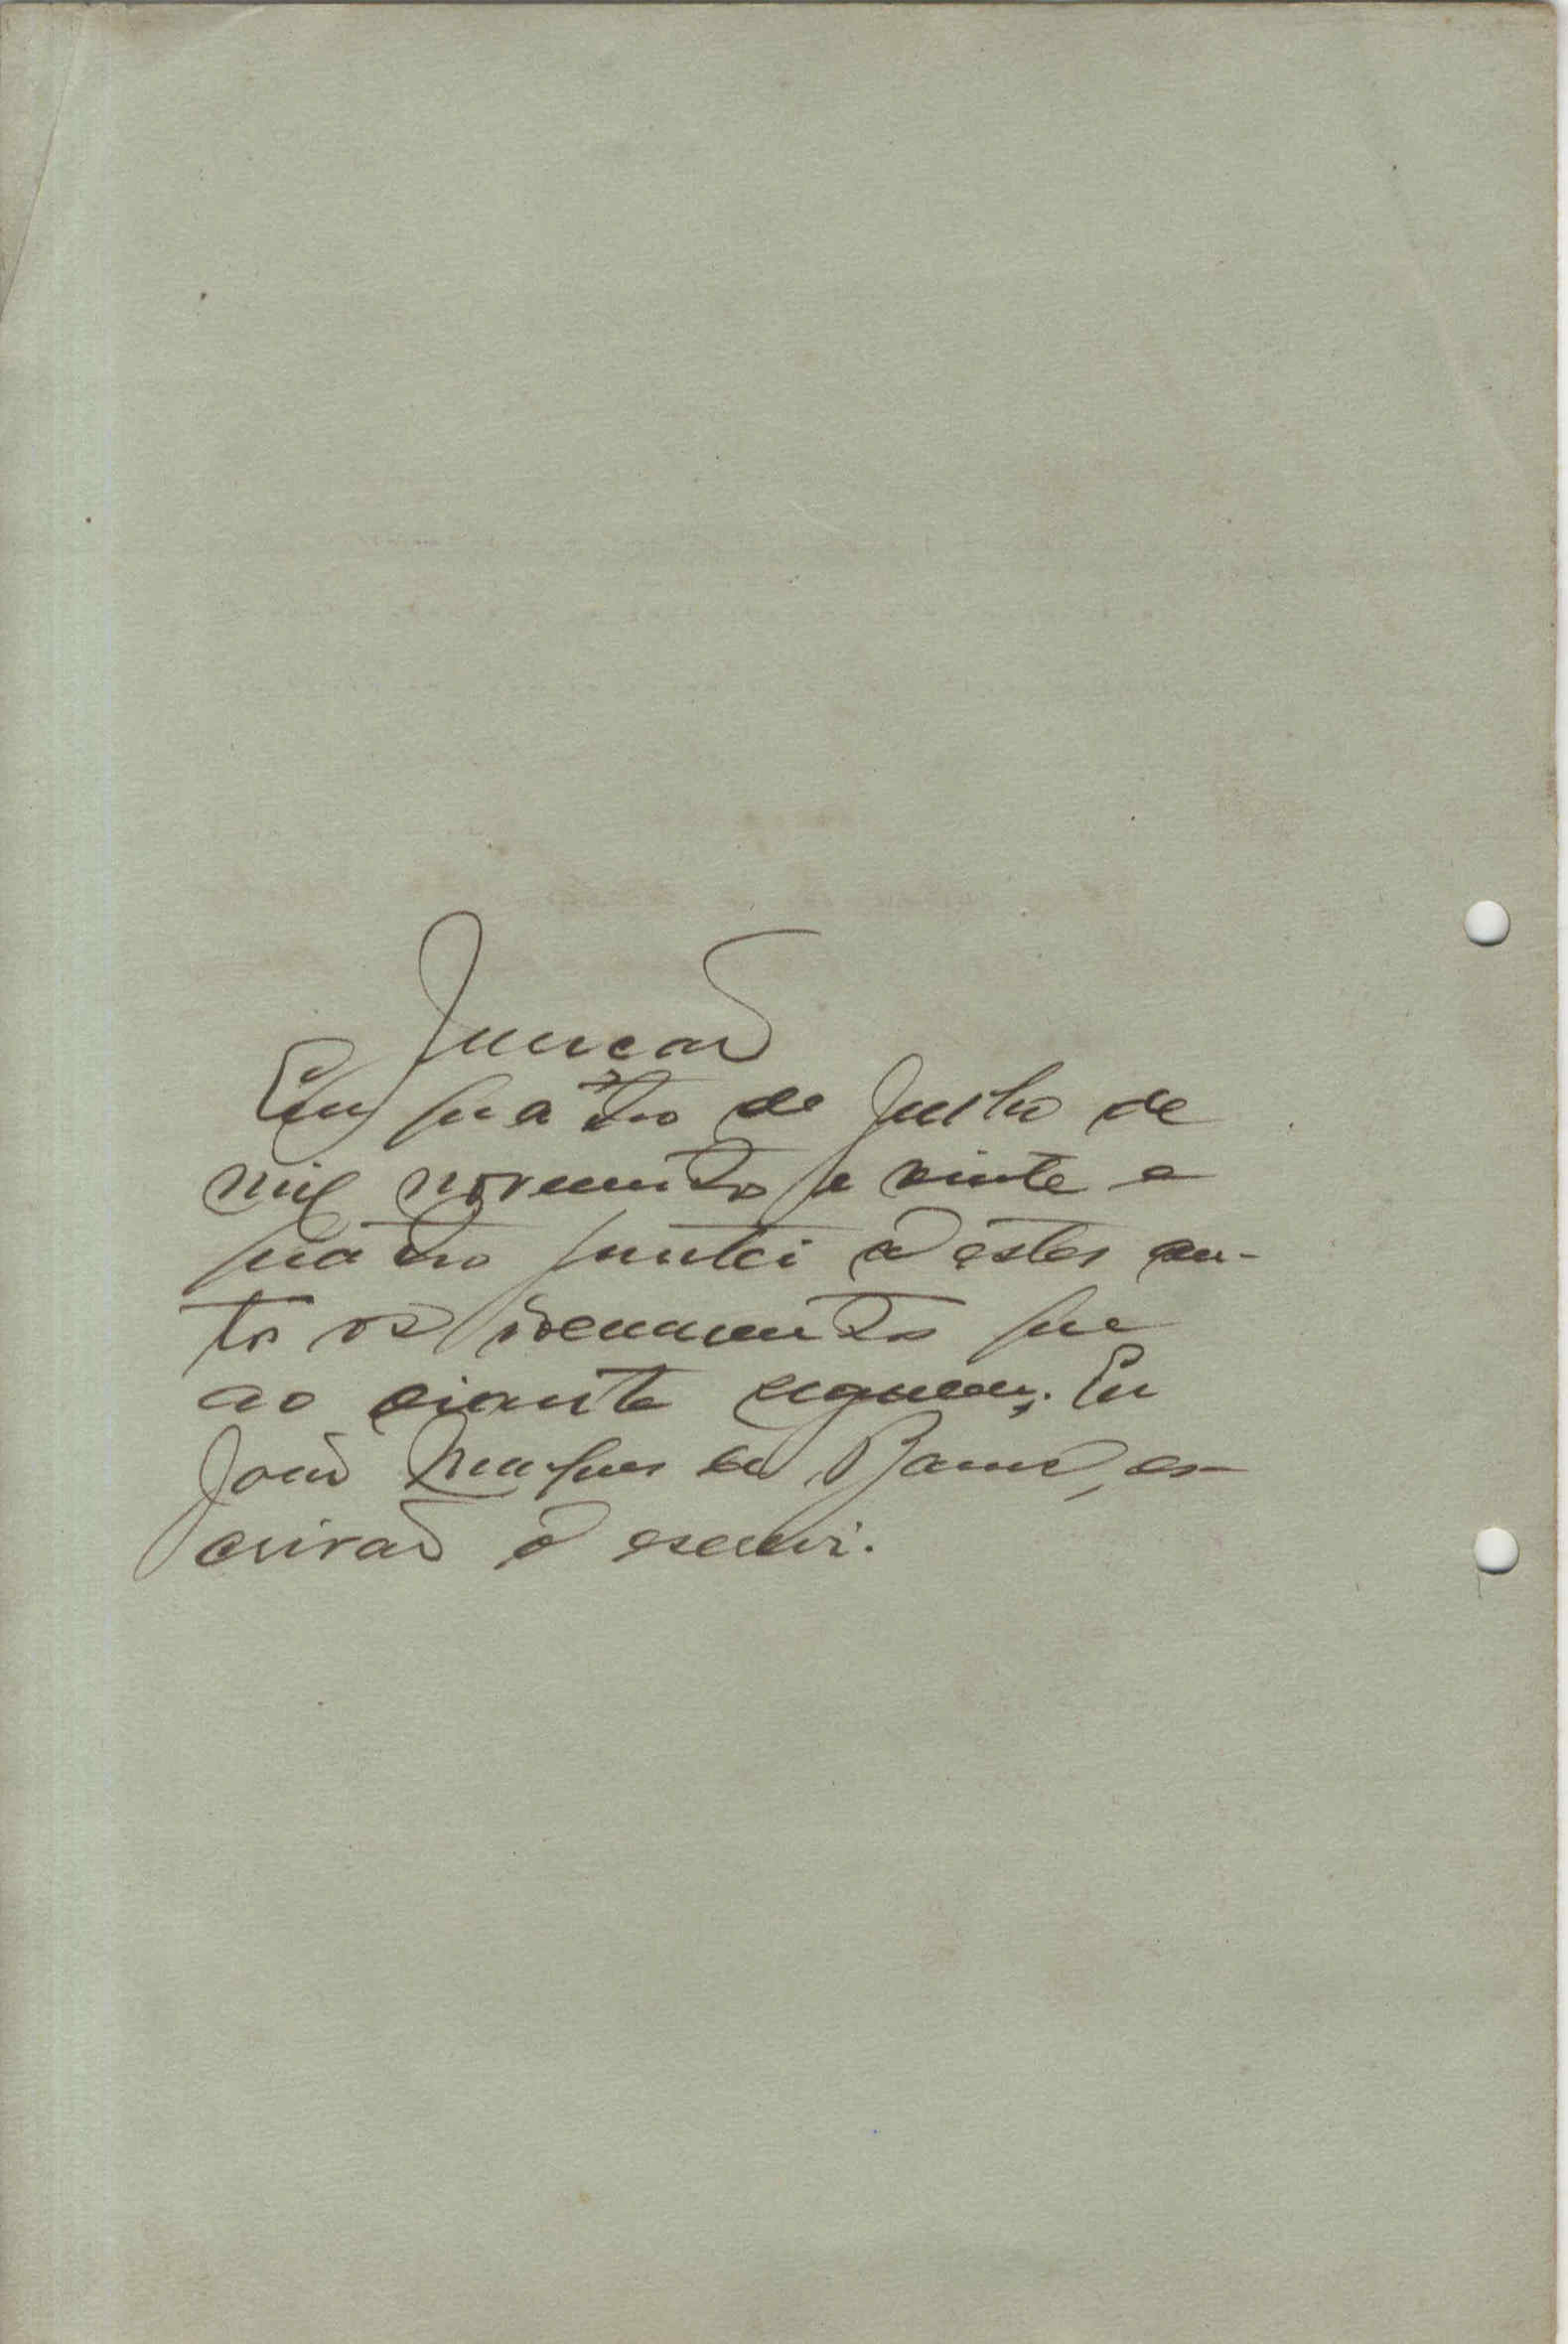 Juncção
Em quatro de Julho de
mil novecentos e vinte e
quatro juntei a estes au-
tos os documentos que
ao diante seguem. Eu
João Marques de Barros, es-
crivão o escrevi.